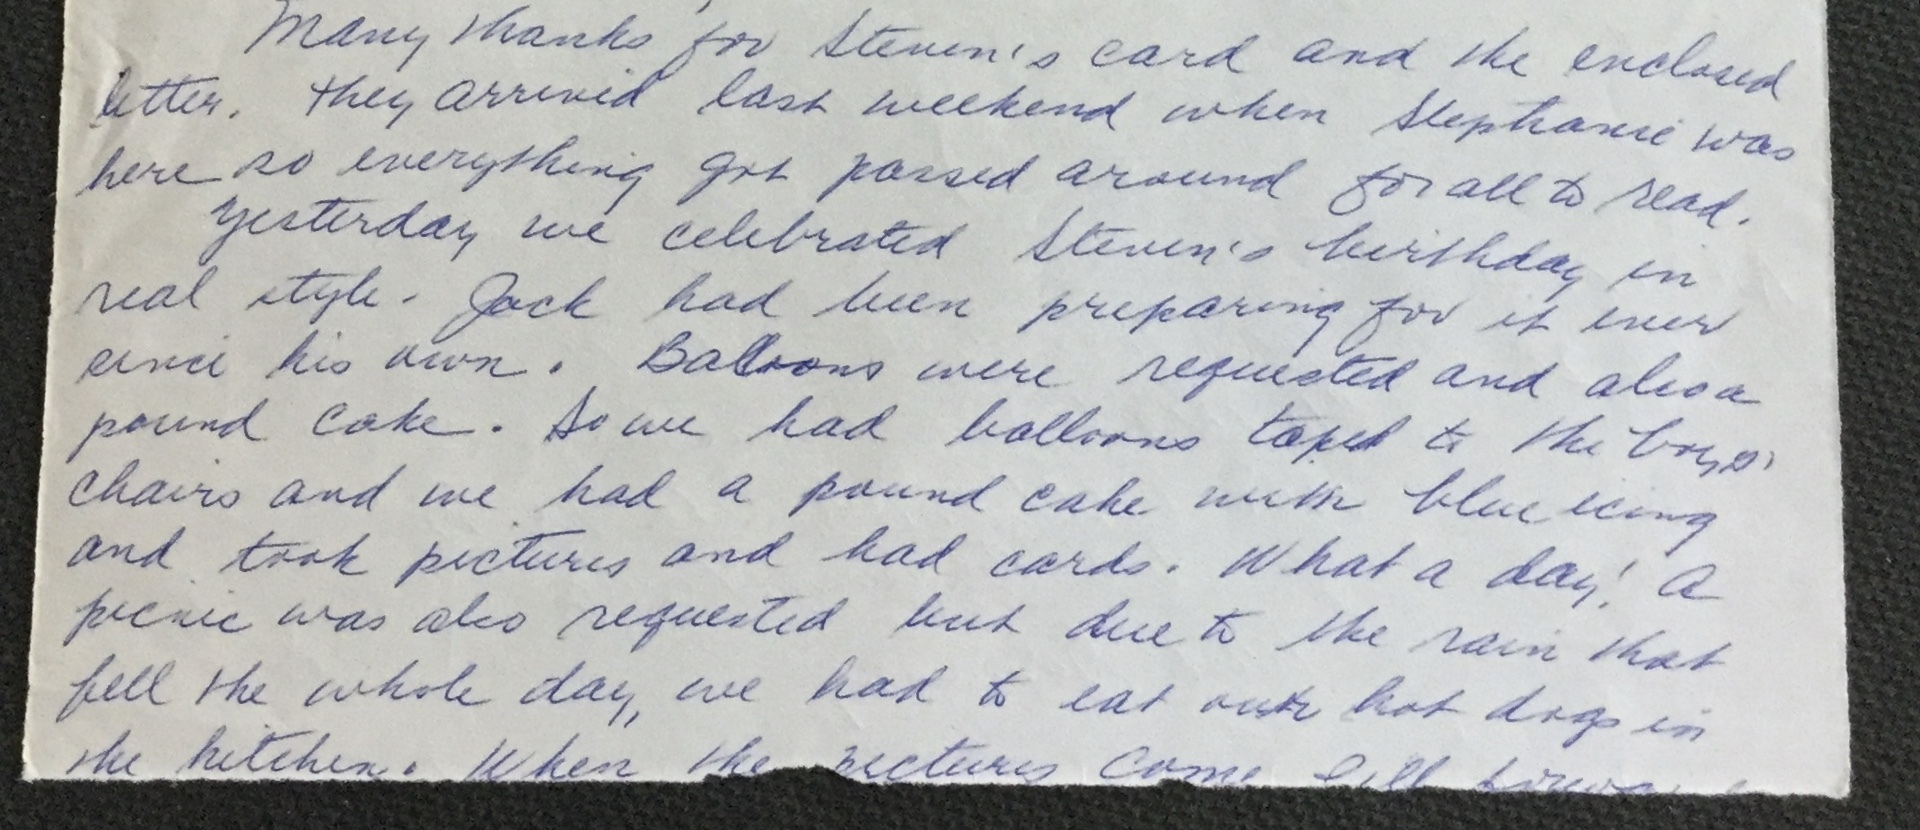 Many thanks for Steven's card and the enclosed
letter. They arrived last weekend when Stephanie was
here so everything got passed around for all to read.
Yesterday we celebrated Steven's birthday in
real style. Jack had been preparing for it ever
since his own. Balloons were requested and also a
pound cake. So we had balloons taped to the boys'
chairs and we had a pound cake with blue icing
and took pictures and had cards. What a day! A
picnic was also requested but due to the rain that
fell the whole day, we had to eat our hot dogs in
the kitchen. When the pictures come I'll